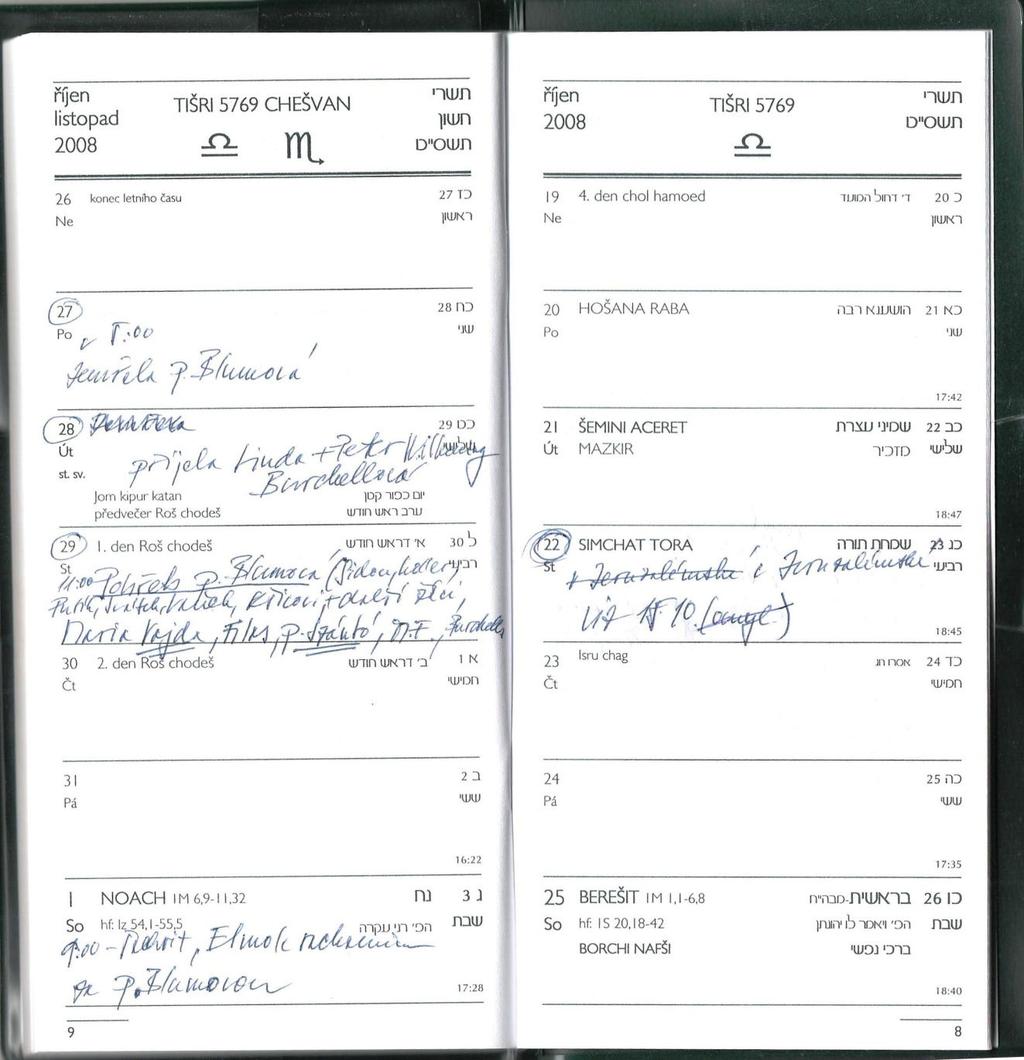 říjen
listopad
2008
TIŠRI 5769 CHEŠVAN
תשרי
חשון
תשס"ט
26 konec letního času 27 כז
Ne ראשון
27 28 כח
Po שני
v 5:00
zemřela p. Blumová
28 29 כט
Út שלישי
st. sv.
přijela Linda + Petr
Burchellová
Jom kipur katan יום כפור קטן
předvečer Roš chodeš ערב ראש חודש
29 1. den Roš chodeš א' דראש חודש 30 ל
St רביעי
11:00 Pohřeb p. Blumová
Maria Vajda, p. Szántó,
30 2. den Roš chodeš ב' דראש חודש 1 א
Čt חמישי
31 2 ב
Pá ששי
16:22
1 NOACH 1M 6,9-11,32 נח 3 ג
So hf: Iz 54,1-55,5 הפ' רני עקרה שבת
9:00 -
za p. Blumovou
17:28
9
říjen
2008
TIŠRI 5769
תשרי
תשס"ט
19 4. den chol hamoed ד' דחול המועד 20 כ
Ne ראשון
20 HOŠANA RABA הושענא רבה 21 כא
Po שני
17:42
21 ŠEMINI ACERET שמיני עצרת 22 כב
Út MAZKIR מזכיר שלישי
18:47
22 SIMCHAT TORA שמחת תורה 23 כג
St רביעי
v Jeruzalémské i Jeruzalémská
viz 15.10.
18:45
23 Isru chag אסרו חג 24 כד
Čt חמישי
24 25 כה
Pá ששי
17:35
25 BEREŠIT 1M 1,1-6,8 בראשית-מבה"ח 26 כו
So hf: 1S 20,18-42 הפ' ויאמר לו יהונתן שבת
BORCHI NAFŠI ברכי נפשי
18:40
8